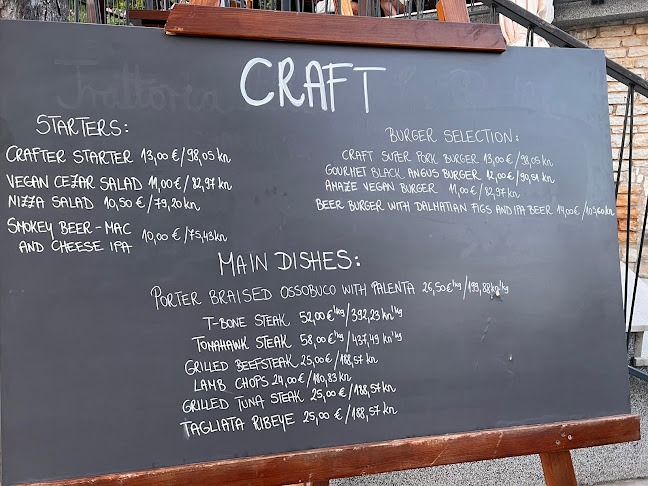 Trattoria
CRAFT
STARTERS:
CRAFTER STARTER 13,00 €/98,05 kn
VEGAN CEZAR SALAD 11,00 €/82,97 kn
NIZZA SALAD 10,50 €/79,20 kn
SMOKEY BEER-MAC
AND CHEESE IPA 10,00 €/75,43 kn
BURGER SELECTION:
CRAFT SUPER PORK BURGER 13,00 €/98,05 kn
GOURMET BLACK ANGUS BURGER 12,00 €/90,91 kn
AMAZE VEGAN BURGER 11,00 €/82,97 kn
BEER BURGER WITH DALMATIAN FIGS AND IPA BEER 14,00 €/105,60 kn
MAIN DISHES:
PORTER BRAISED OSSOBUCO WITH PALENTA 26,50 €/kg/199,88 kn/kg
T-BONE STEAK 52,00 €/kg/392,23 kn/kg
TOMAHAWK STEAK 58,00 €/kg/437,49 kn/kg
GRILLED BEEFSTEAK 25,00 €/188,57 kn
LAMB CHOPS 24,00 €/180,83 kn
GRILLED TUNA STEAK 25,00 €/188,57 kn
TAGLIATA RIBEYE 25,00 €/188,57 kn